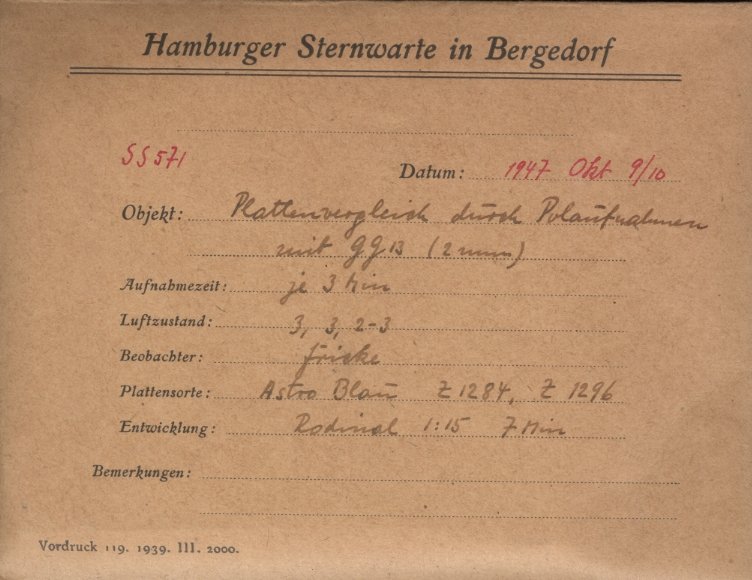 Hamburger Sternwarte in Bergedorf
SS 571
Datum: 1947 Okt 9/10
Objekt: Plattenvergleich durch Polaufnahmen
mit GG 13 (2 mm)
Aufnahmezeit: je 3 Min
Luftzustand: 3, 3, 2-3
Beobachter: Fricke
Plattensorte: Astro Blau Z 1284, Z 1296
Entwicklung: Rodinal 1:15 7 Min
Bemerkungen:
Vordruck 119. 1939. III. 2000.